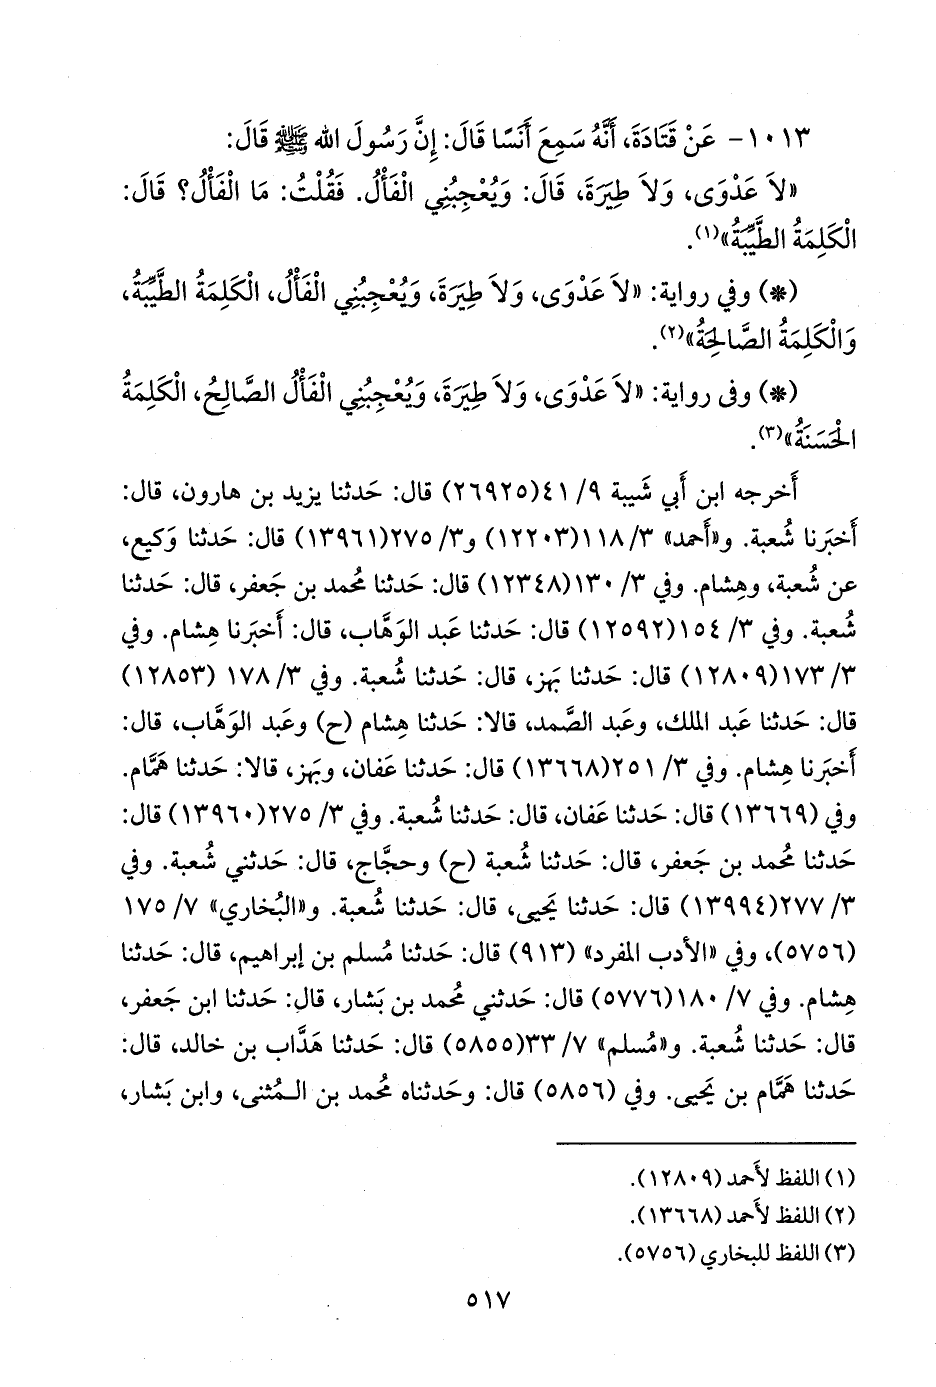 ١٠١٣- عَنْ قَتَادَةَ، أَنَّهُ سَمِعَ أَنَسًا قَالَ: إِنَّ رَسُولَ الله ﷺ قَالَ:
«لاَ عَدْوَى، وَلاَ طِيَرَةَ، قَالَ: وَيُعْجِبُنِي الْفَأْلُ. فَقُلْتُ: مَا الْفَأْلُ؟ قَالَ:
الْكَلِمَةُ الطَّيِّبَةُ»(١).
(*) وفي رواية: «لاَ عَدْوَى، وَلاَ طِيَرَةَ، وَيُعْجِبُنِي الْفَأْلُ، الْكَلِمَةُ الطَّيِّبَةُ،
وَالْكَلِمَةُ الصَّالِحَةُ»(٢).
(*) وفى رواية: «لاَ عَدْوَى، وَلاَ طِيَرَةَ، وَيُعْجِبُنِي الْفَأْلُ الصَّالِحُ، الْكَلِمَةُ
الْحَسَنَةُ»(٣).
أَخرجه ابن أَبي شَيبة ٩/ ٤١(٢٦٩٢٥) قال: حَدثنا يزيد بن هارون، قال:
أَخبَرنا شُعبة. و«أَحمد» ٣/ ١١٨(١٢٢٠٣) و٣/ ٢٧٥(١٣٩٦١) قال: حَدثنا وَكيع،
عن شُعبة، وهِشام. وفي ٣/ ١٣٠(١٢٣٤٨) قال: حَدثنا مُحمد بن جَعفر، قال: حَدثنا
شُعبة. وفي ٣/ ١٥٤(١٢٥٩٢) قال: حَدثنا عَبد الوَهَّاب، قال: أَخبَرنا هِشام. وفي
٣/ ١٧٣(١٢٨٠٩) قال: حَدثنا بَهز، قال: حَدثنا شُعبة. وفي ٣/ ١٧٨ (١٢٨٥٣)
قال: حَدثنا عَبد الملك، وعَبد الصَّمد، قالا: حَدثنا هِشام (ح) وعَبد الوَهَّاب، قال:
أَخبَرنا هِشام. وفي ٣/ ٢٥١(١٣٦٦٨) قال: حَدثنا عَفان، وبَهز، قالا: حَدثنا هَمَّام.
وفي (١٣٦٦٩) قال: حَدثنا عَفان، قال: حَدثنا شُعبة. وفي ٣/ ٢٧٥(١٣٩٦٠) قال:
حَدثنا مُحمد بن جَعفر، قال: حَدثنا شُعبة (ح) وحجَّاج، قال: حَدثني شُعبة. وفي
٣/ ٢٧٧(١٣٩٩٤) قال: حَدثنا يَحيى، قال: حَدثنا شُعبة. و«البُخاري» ٧/ ١٧٥
(٥٧٥٦)، وفي «الأدب المفرد» (٩١٣) قال: حَدثنا مُسلم بن إبراهيم، قال: حَدثنا
هِشام. وفي ٧/ ١٨٠(٥٧٧٦) قال: حَدثني مُحمد بن بَشار، قال: حَدثنا ابن جَعفر،
قال: حَدثنا شُعبة. و«مُسلم» ٧/ ٣٣(٥٨٥٥) قال: حَدثنا هَدَّاب بن خالد، قال:
حَدثنا هَمَّام بن يَحيى. وفي (٥٨٥٦) قال: وحَدثناه مُحمد بن الـمُثنى، وابن بَشار،
(١) اللفظ لأَحمد (١٢٨٠٩).
(٢) اللفظ لأَحمد (١٣٦٦٨).
(٣) اللفظ للبخاري (٥٧٥٦).
٥١٧